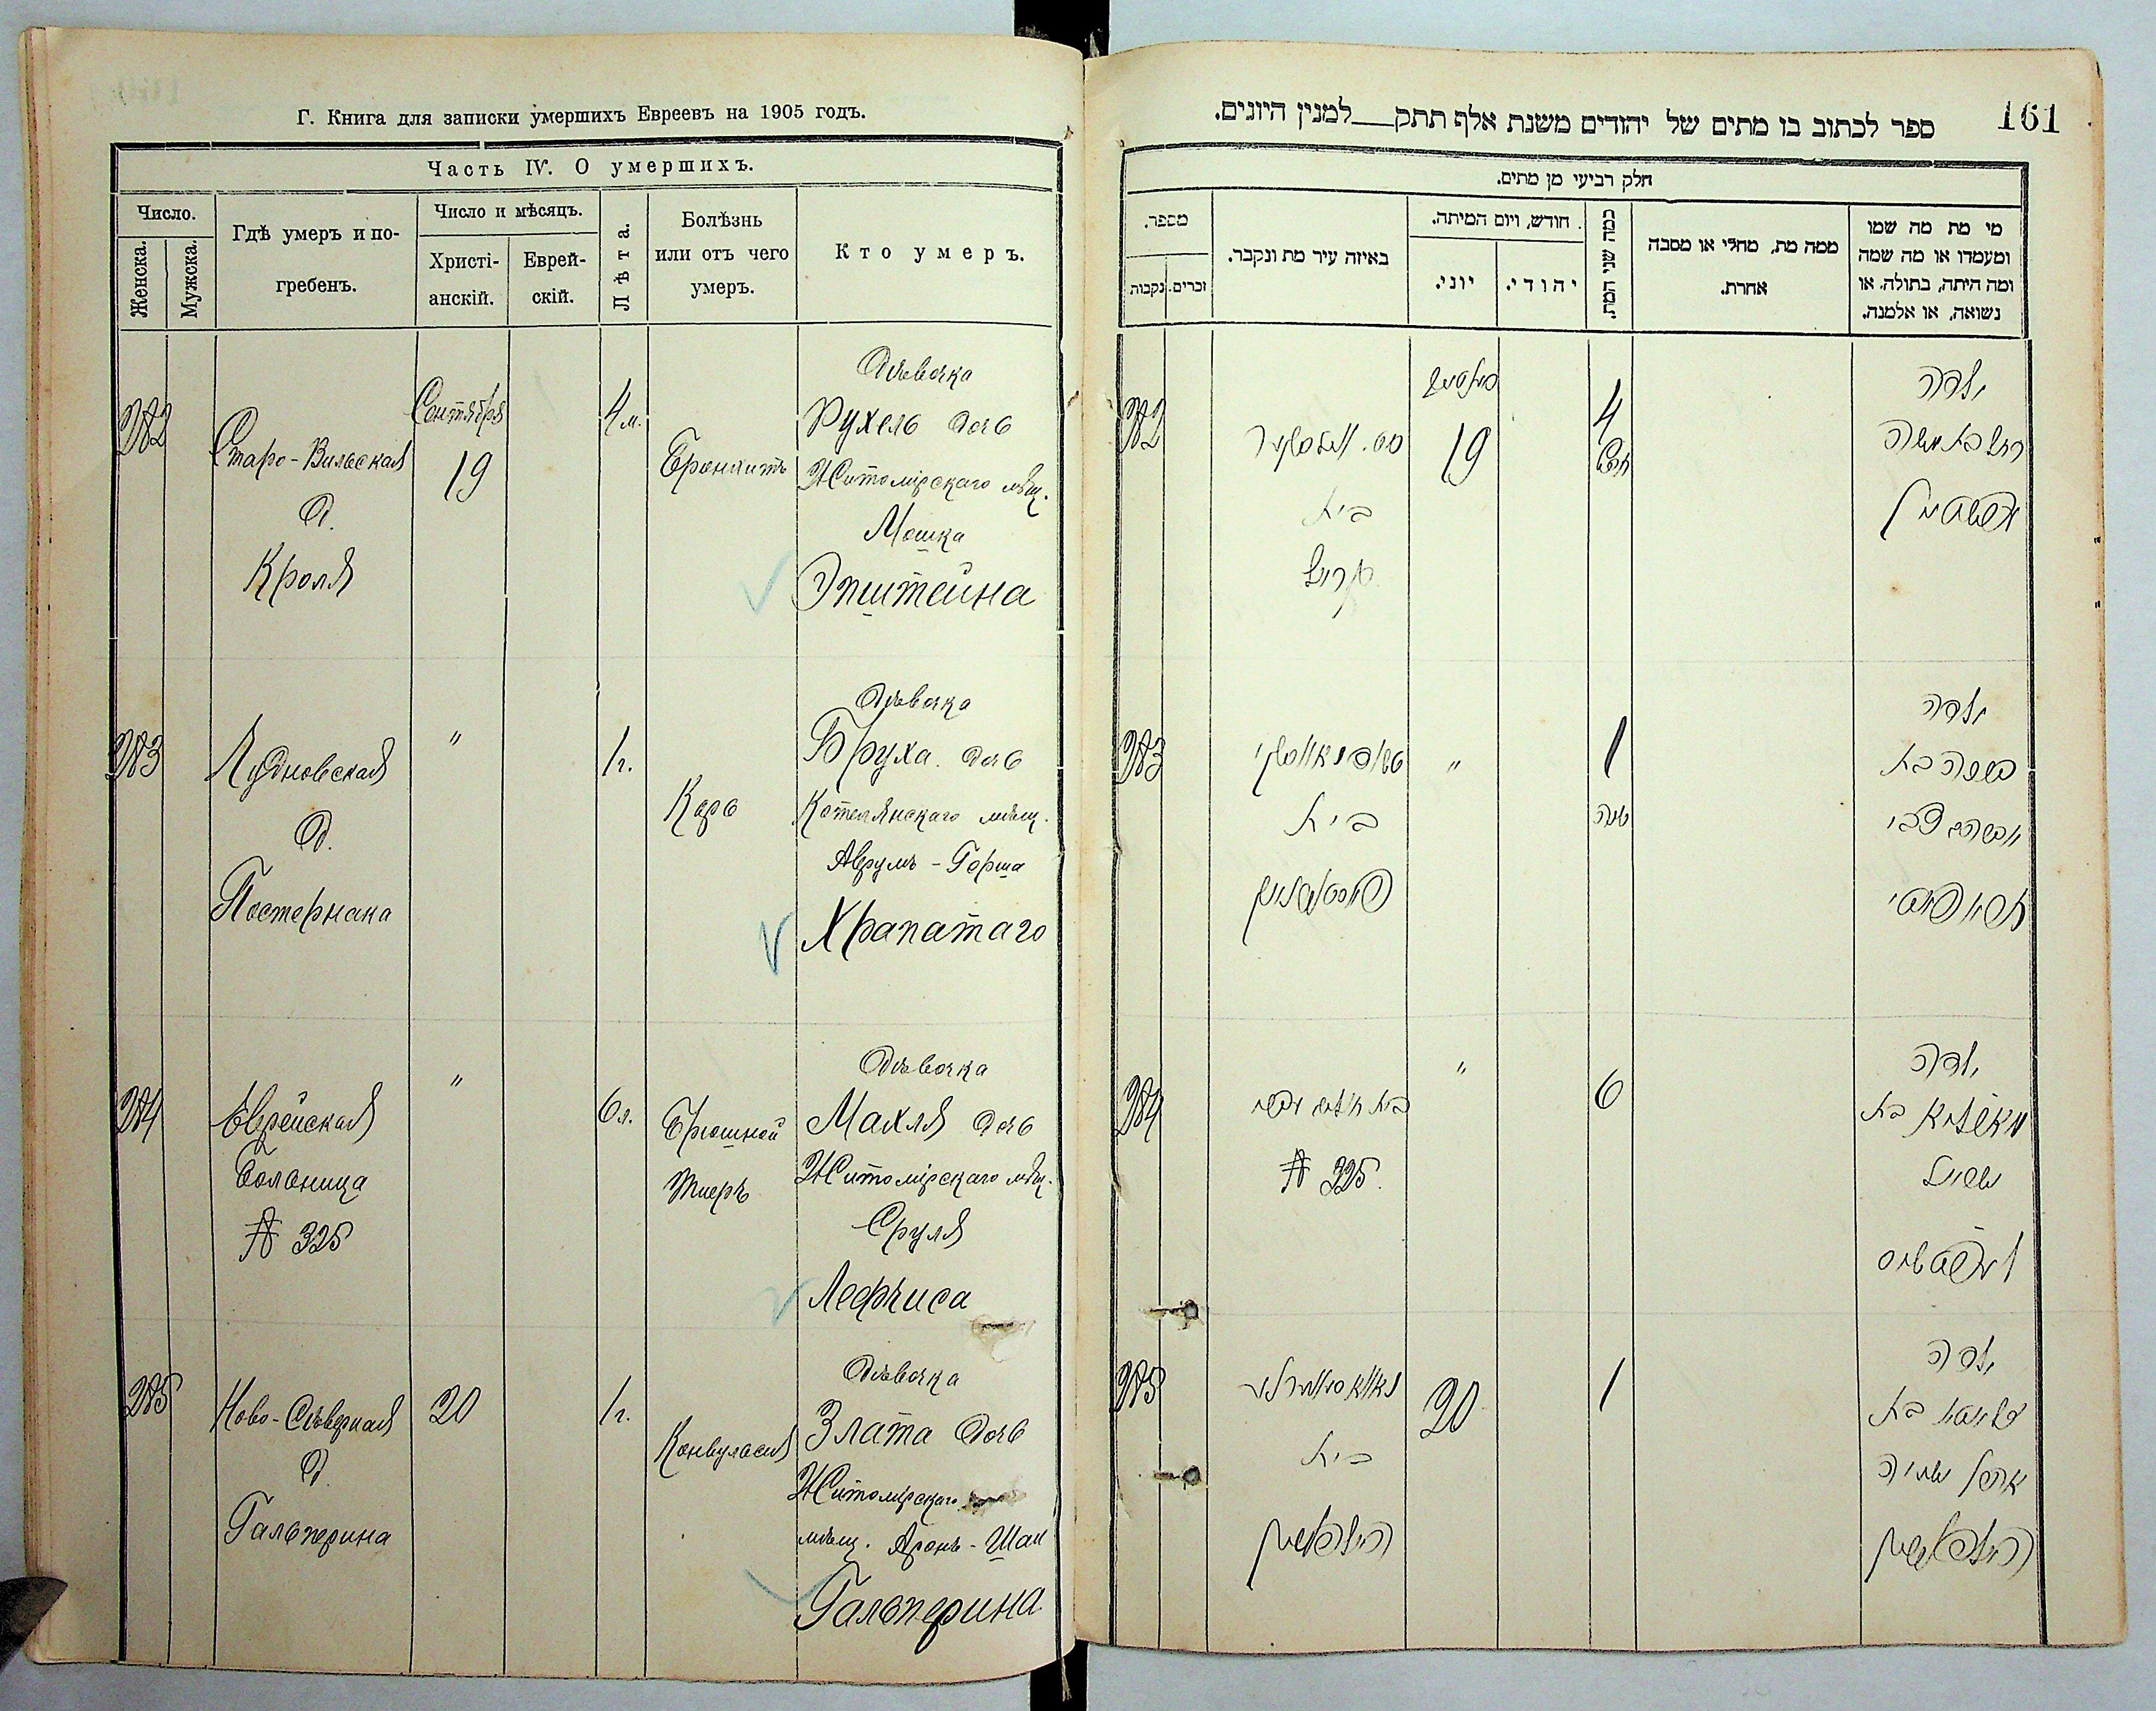 Г. Книга для записки умершихъ Евреевъ на 1905 годъ.
Часть IV. О умершихъ.
Число.
Женска.
Мужска.
Гдѣ умеръ и по-
гребенъ.
Число и мѣсяцъ.
Христі-
анскій.
Еврей-
скій.
Лѣта.
Болѣзнь
или отъ чего
умеръ.
Кто умеръ.
282
Старо-Вильская
д.
Кроля
Сентября
19
4 м.
Бронхитъ
Дѣвочка
Рухель дочь
Житомірскаго мѣщ.
Мошка
Эпштейна
283
Чудновская
д.
Постернака
"
1 г.
Корь
Дѣвочка
Бруха дочь
Котелянскаго мѣщ.
Аврумъ-Герша
Храпатаго
284
Еврейская
больница
№ 325
"
6 л.
Брюшной
тифъ
Дѣвочка
Махля дочь
Житомірскаго мѣщ.
Сруля
285
Ново-Сѣверная
д.
Гальперина
20
1 г.
Конвульсія
Дѣвочка
Злата дочь
Житомірскаго
мѣщ. Аронъ-Шаи
Гальперина
161
ספר לכתוב בו מתים של יהודים משנת אלף תתק__למנין היונים.
חלק רביעי מן מתים.
מספר.
נקבות
זכרים.
באיזה עיר מת ונקבר.
חודש, ויום המיתה.
יוני.
יהודי.
כמה שני המת.
ממה מת, מחלי או מסבה
אחרת.
מי מת מה שמו
ומעמדו או מה שמה
ומה היתה, בתולה, או
נשואה, או אלמנה.
282
בית
קרול
19
4
ילדה
רחל בת משה
עפשטיין
283
בית
"
1
שנה
ילדה
ברכה בת
אברהם צבי
284
№ 325.
"
6
ילדה
285
בית
20
1
ילדה
זלאטע בת
אהרן ישעיה